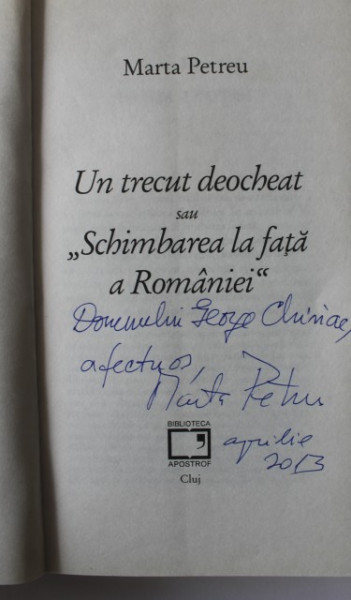 Marta Petreu
Un trecut deocheat
sau
„Schimbarea la faţă
a României“
Domnului George Chiriac,
afectuos,
Marta Petreu
BIBLIOTECA
APOSTROF
Cluj
aprilie
2013